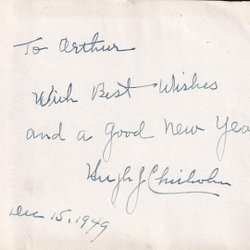 To Arthur
With Best Wishes
and a Good New Yea
Hugh J Chisholm
Dec 15, 1949